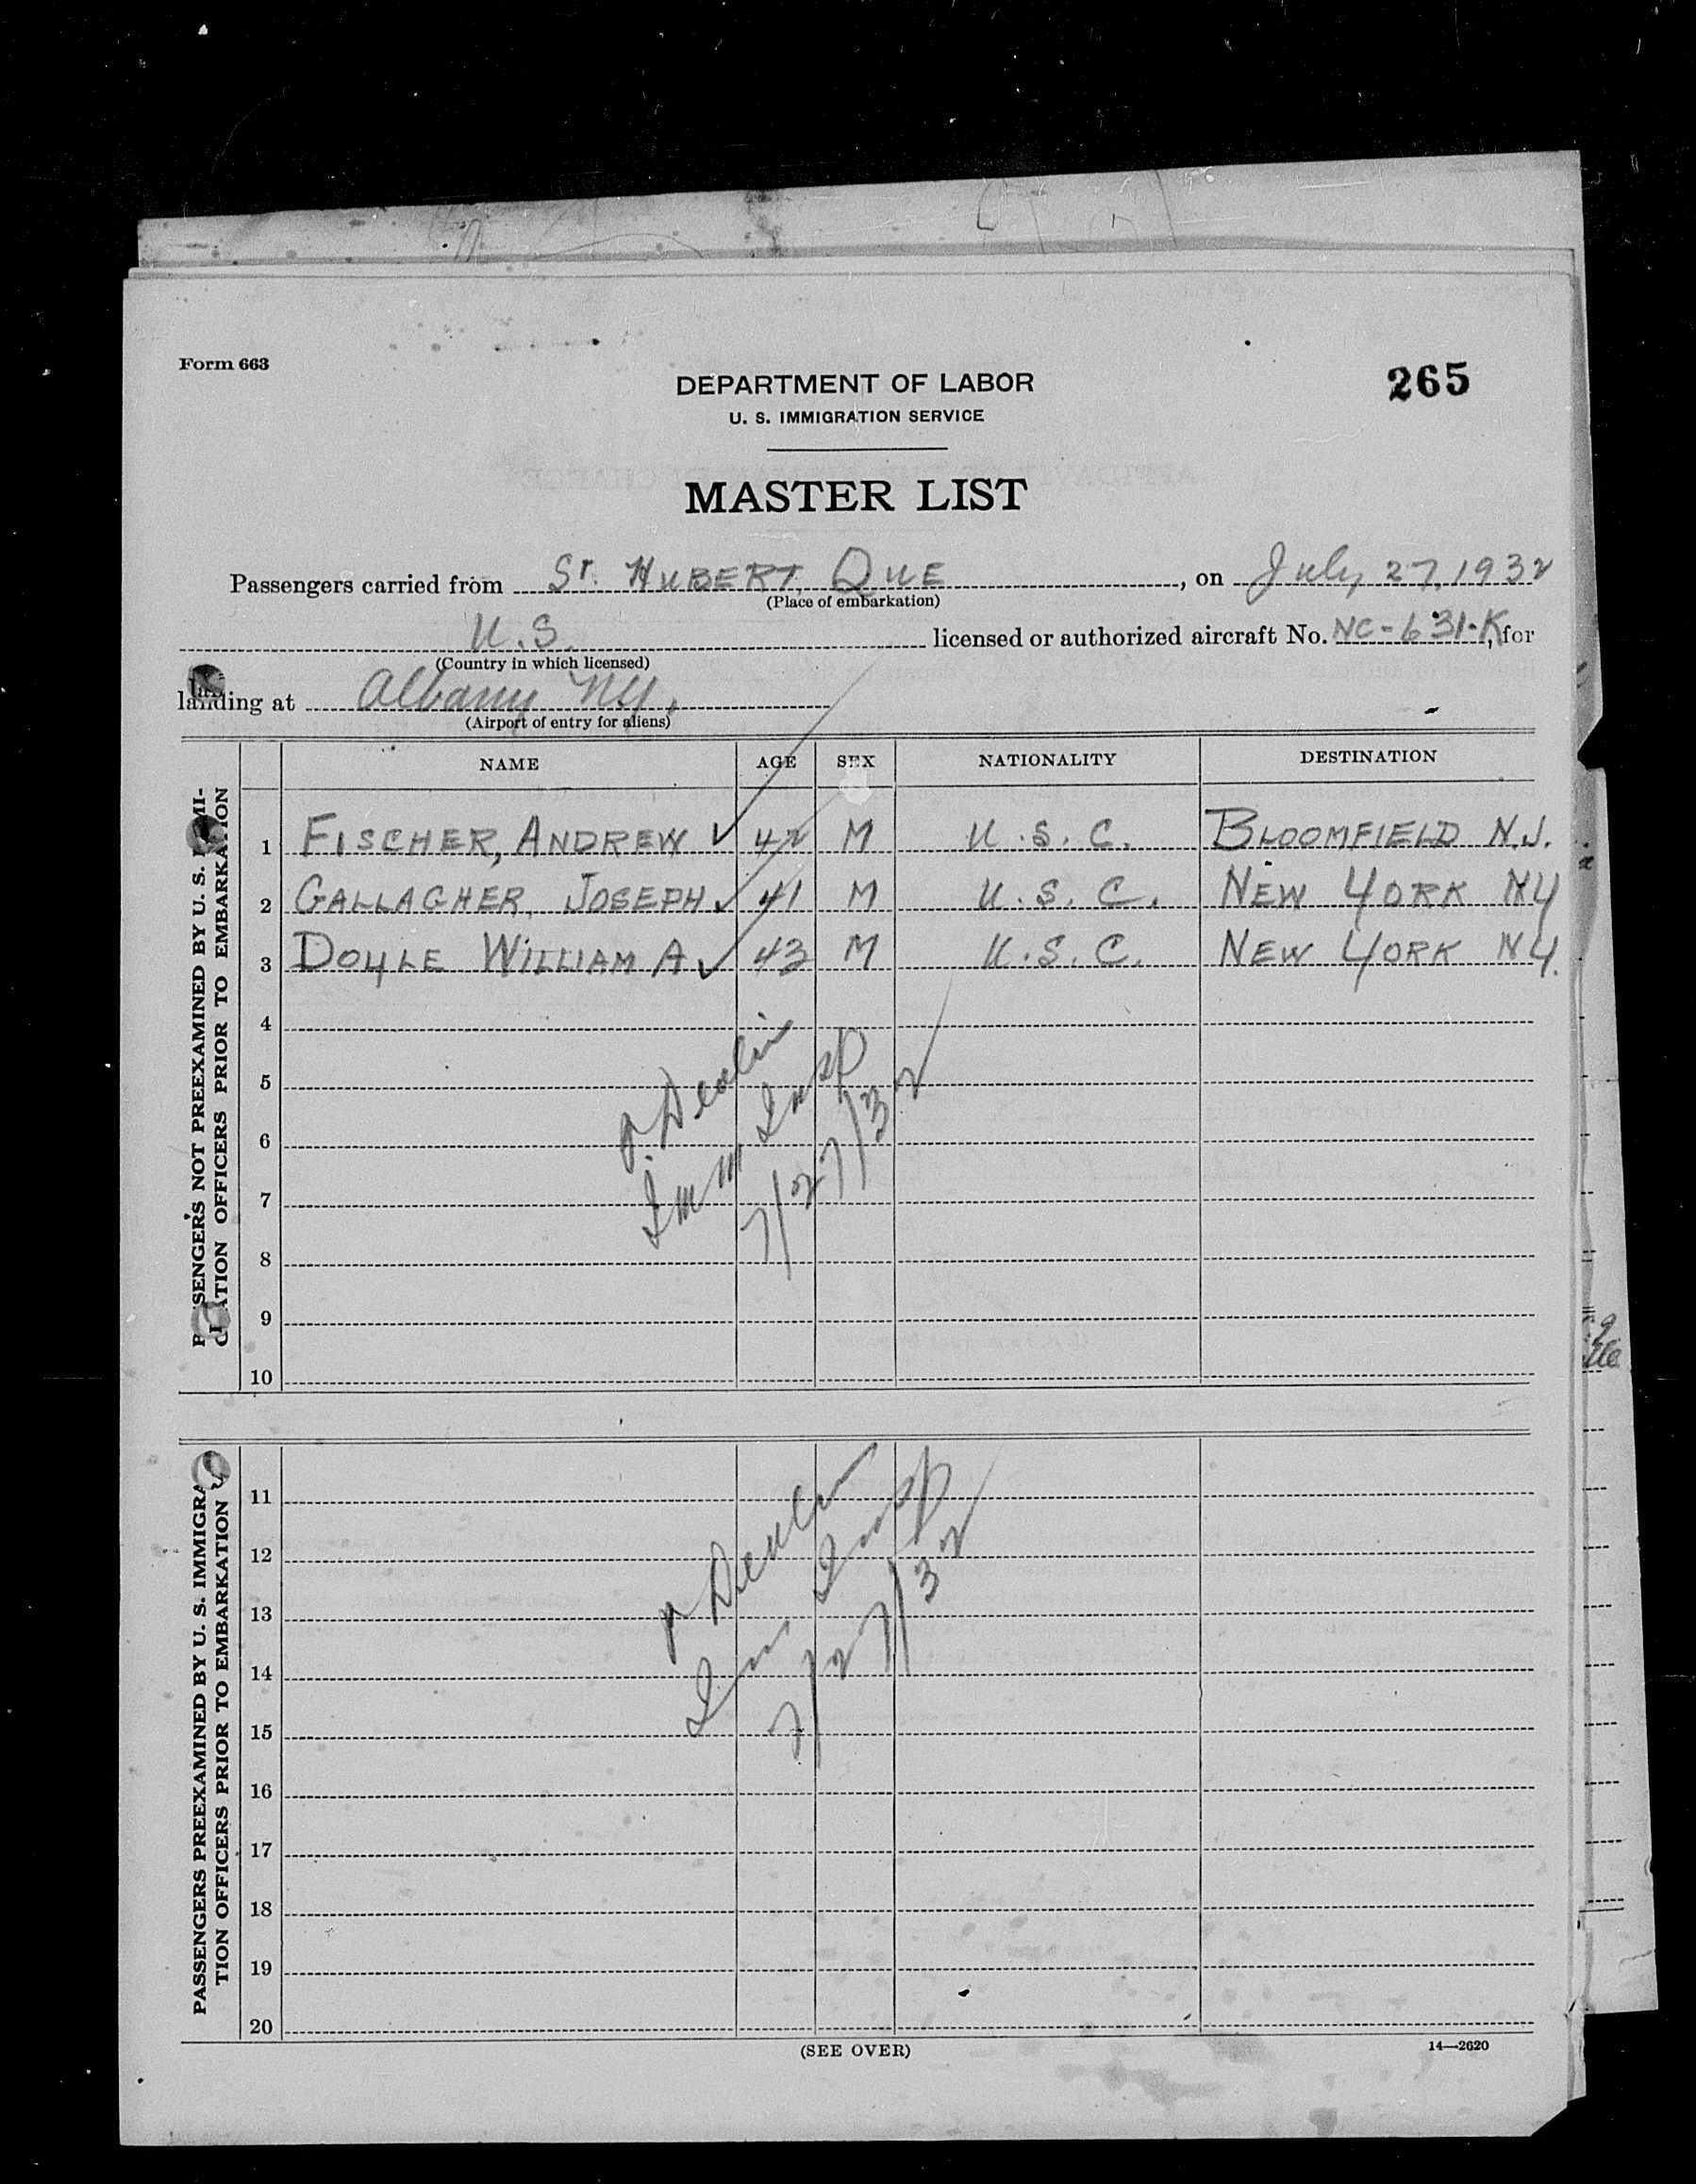 Form 663
265
DEPARTMENT OF LABOR
U. S. IMMIGRATION SERVICE
MASTER LIST
Passengers carried from St. HUBERT, QUE, on July 27, 1932
(Place of embarkation)
U.S. licensed or authorized aircraft No. NC-631-K, for
(Country in which licensed)
landing at Albany NY,
(Airport of entry for aliens)
NAME AGE SEX NATIONALITY DESTINATION
PASSENGERS NOT PREEXAMINED BY U. S. IMMI-
GRATION OFFICERS PRIOR TO EMBARKATION
1 FISCHER, ANDREW ✓ 42 M U.S.C. BLOOMFIELD N.J.
2 GALLAGHER, JOSEPH ✓ 41 M U.S.C. NEW YORK NY
3 DOYLE WILLIAM A ✓ 43 M U.S.C. NEW YORK NY.
4
5
6
7
8
9
10
Imm Insp
7/27/32
PASSENGERS PREEXAMINED BY U. S. IMMIGRA-
TION OFFICERS PRIOR TO EMBARKATION
11
12
13
14
15
16
17
18
19
20
Imm Insp
7/27/32
(SEE OVER)
14—2620